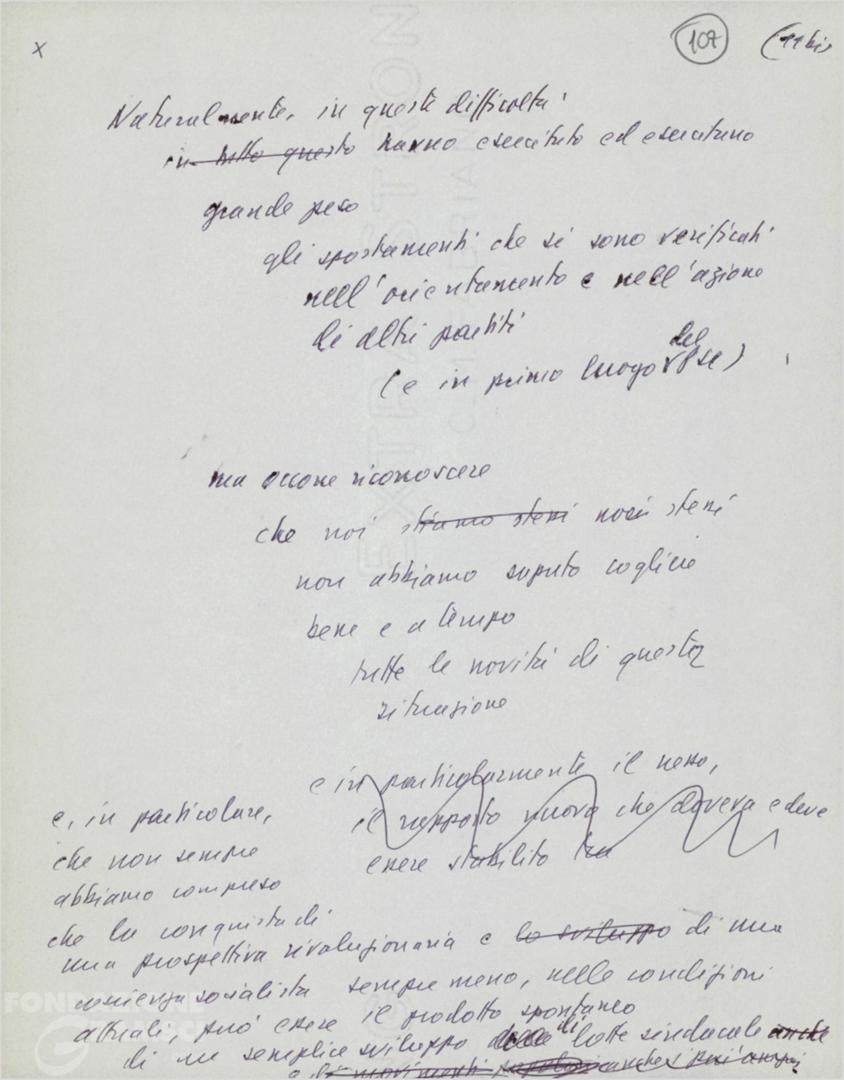 x
107
(11 bis
Naturalmente, in queste difficoltà
in tutto questo hanno esercitato ed esercitano
grande peso
gli spostamenti che si sono verificati
nell'orientamento e nell'azione
di altri partiti
(e in primo luogo del PSI)
ma occorre riconoscere
che noi stiamo stessi noi stessi
non abbiamo saputo cogliere
bene e a tempo
tutte le novità di questa
situazione
e in particolarmente il nesso,
il rapporto nuovo che doveva e deve
essere stabilito tra
e, in particolare,
che non sempre
abbiamo compreso
che la conquista di
una prospettiva rivoluzionaria e lo sviluppo di una
coscienza socialista sempre meno, nelle condizioni
attuali, può essere il prodotto spontaneo
di un semplice sviluppo di lotte sindacale anche
movimenti anche più ampi
FONDAZIONE